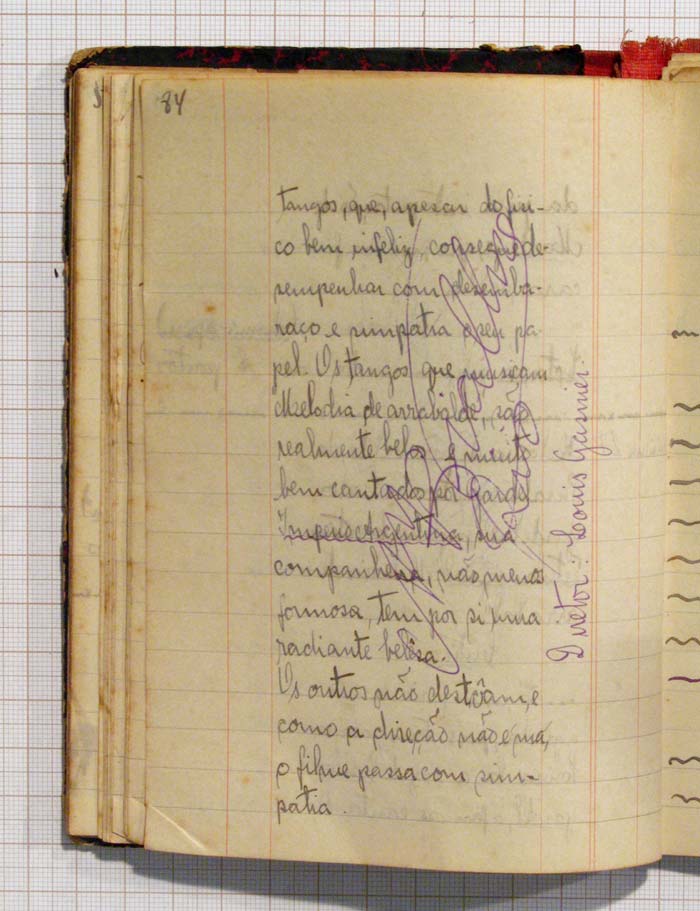 84
tangos, que, apezar do fisi-
co bem infeliz, consegue de-
sempenhar com desemba-
raço e simpatia o seu pa-
pel. Os tangos que musicam
Melodia de arrabalde, são
realmente belos e muito
bem cantados por Gardel
Imperio Argentina, sua
companheira, não menos
formosa, tem por si uma
radiante beleza.
Os outros não destôam, e
como a direcção não é má,
o filme passa com sim-
patia.
Diretor: Louis Gasnier